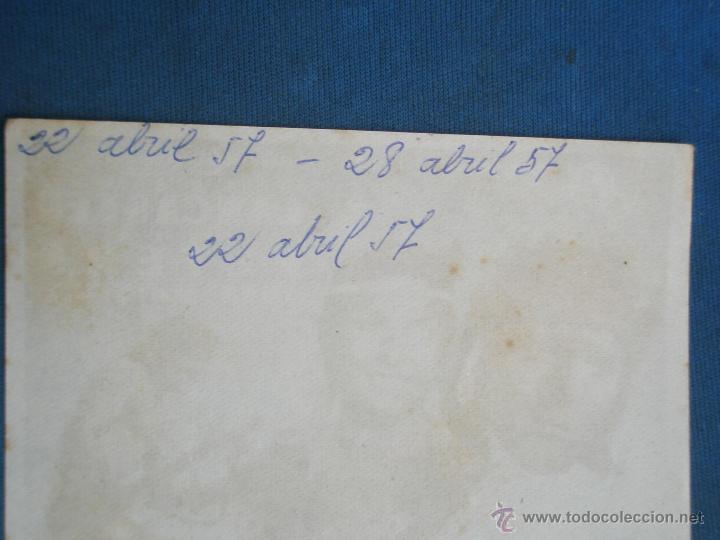 22 abril 57 - 28 abril 57
22 abril 57
www.todocoleccion.net